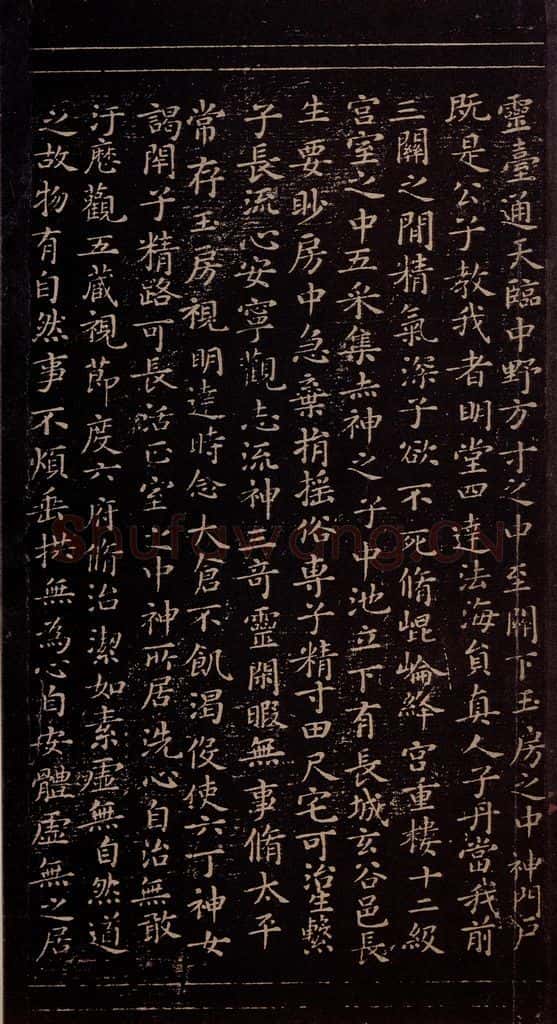 靈臺通天臨中野方寸之中至關下玉房之中神門戶
既是公子教我者明堂四達法海負真人子丹當我前
三關之間精氣深子欲不死脩崐崘絳宮重樓十二級
宮室之中五采集赤神之子中池立下有長城玄谷邑長
生要眇房中急棄捐搖俗專子精寸田尺宅可治生繫
子長流心安寧觀志流神三奇靈閑暇無事脩太平
常存玉房視明達時念大倉不飢渴役使六丁神女
謁閇子精路可長活正室之中神所居洗心自治無敢
汙歷觀五藏視節度六府脩治潔如素虛無自然道
之故物有自然事不煩垂拱無為心自安體虛無之居
Shufawang.CN